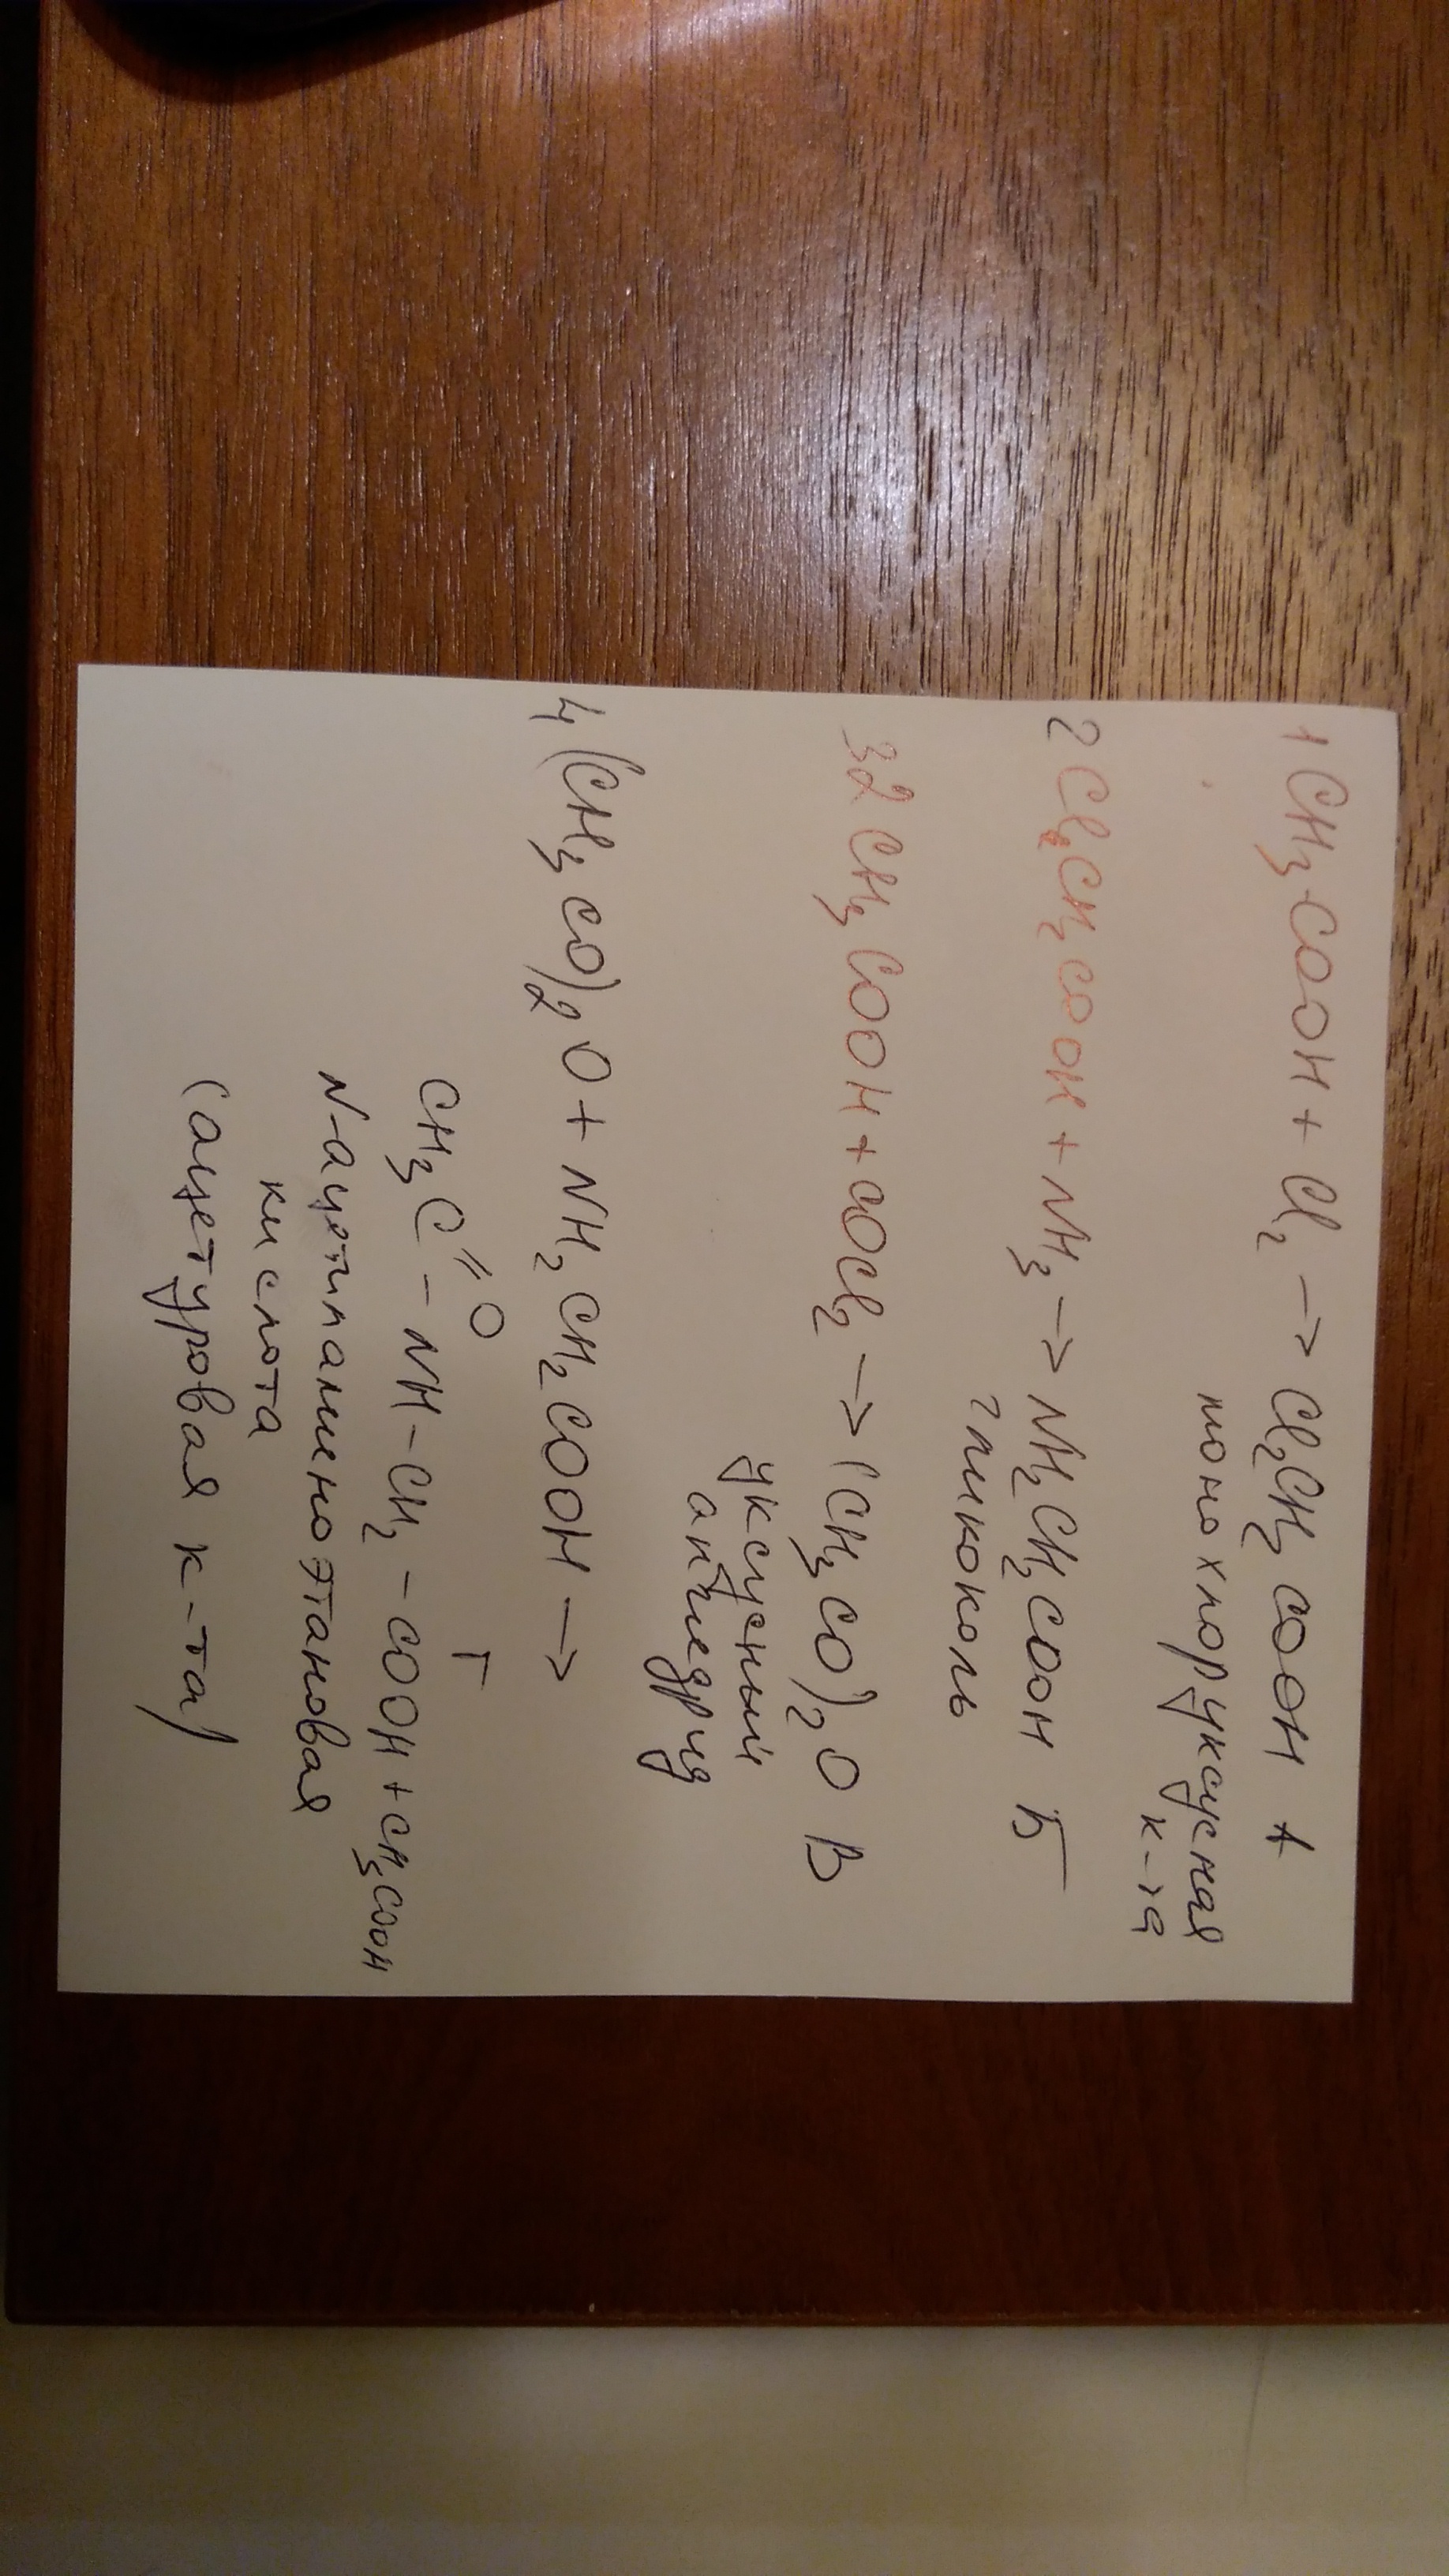 1 CH₃COOH + Cl₂ → Cl₂CH₂COOH А
монохлоруксусная
к-та
2 Cl₂CH₂COOH + NH₃ → NH₂CH₂COOH Б
гликоколь
3 2CH₃COOH + COCl₂ → (CH₃CO)₂O В
уксусный
ангидрид
4 (CH₃CO)₂O + NH₂CH₂COOH →
CH₃C=O – NH – CH₂ – COOH + CH₃COOH
Г
N-ацетиламиноэтановая
кислота
(ацетуровая к-та)